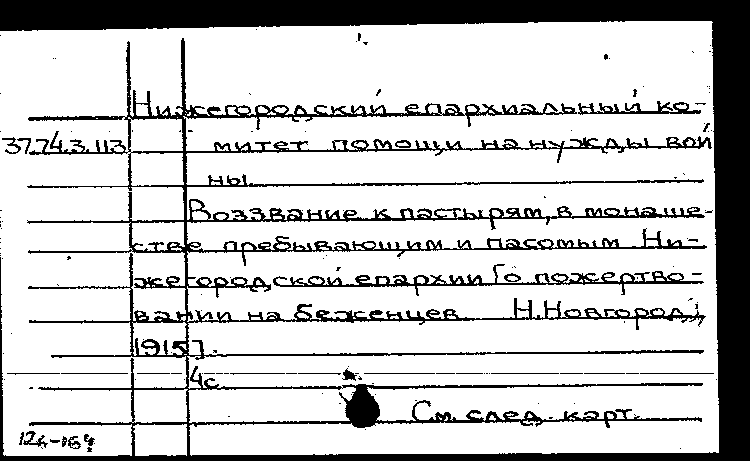 Нижегородский епархиальный ко-
37.74.3.113 митет помощи на нужды вой
ны.
Воззвание к пастырям, в монаше-
стве пребывающим и пасомым Ни-
жегородской епархии [о пожертво-
вании на беженцев. Н.Новгород,
1915].
4с.
См. след. карт.